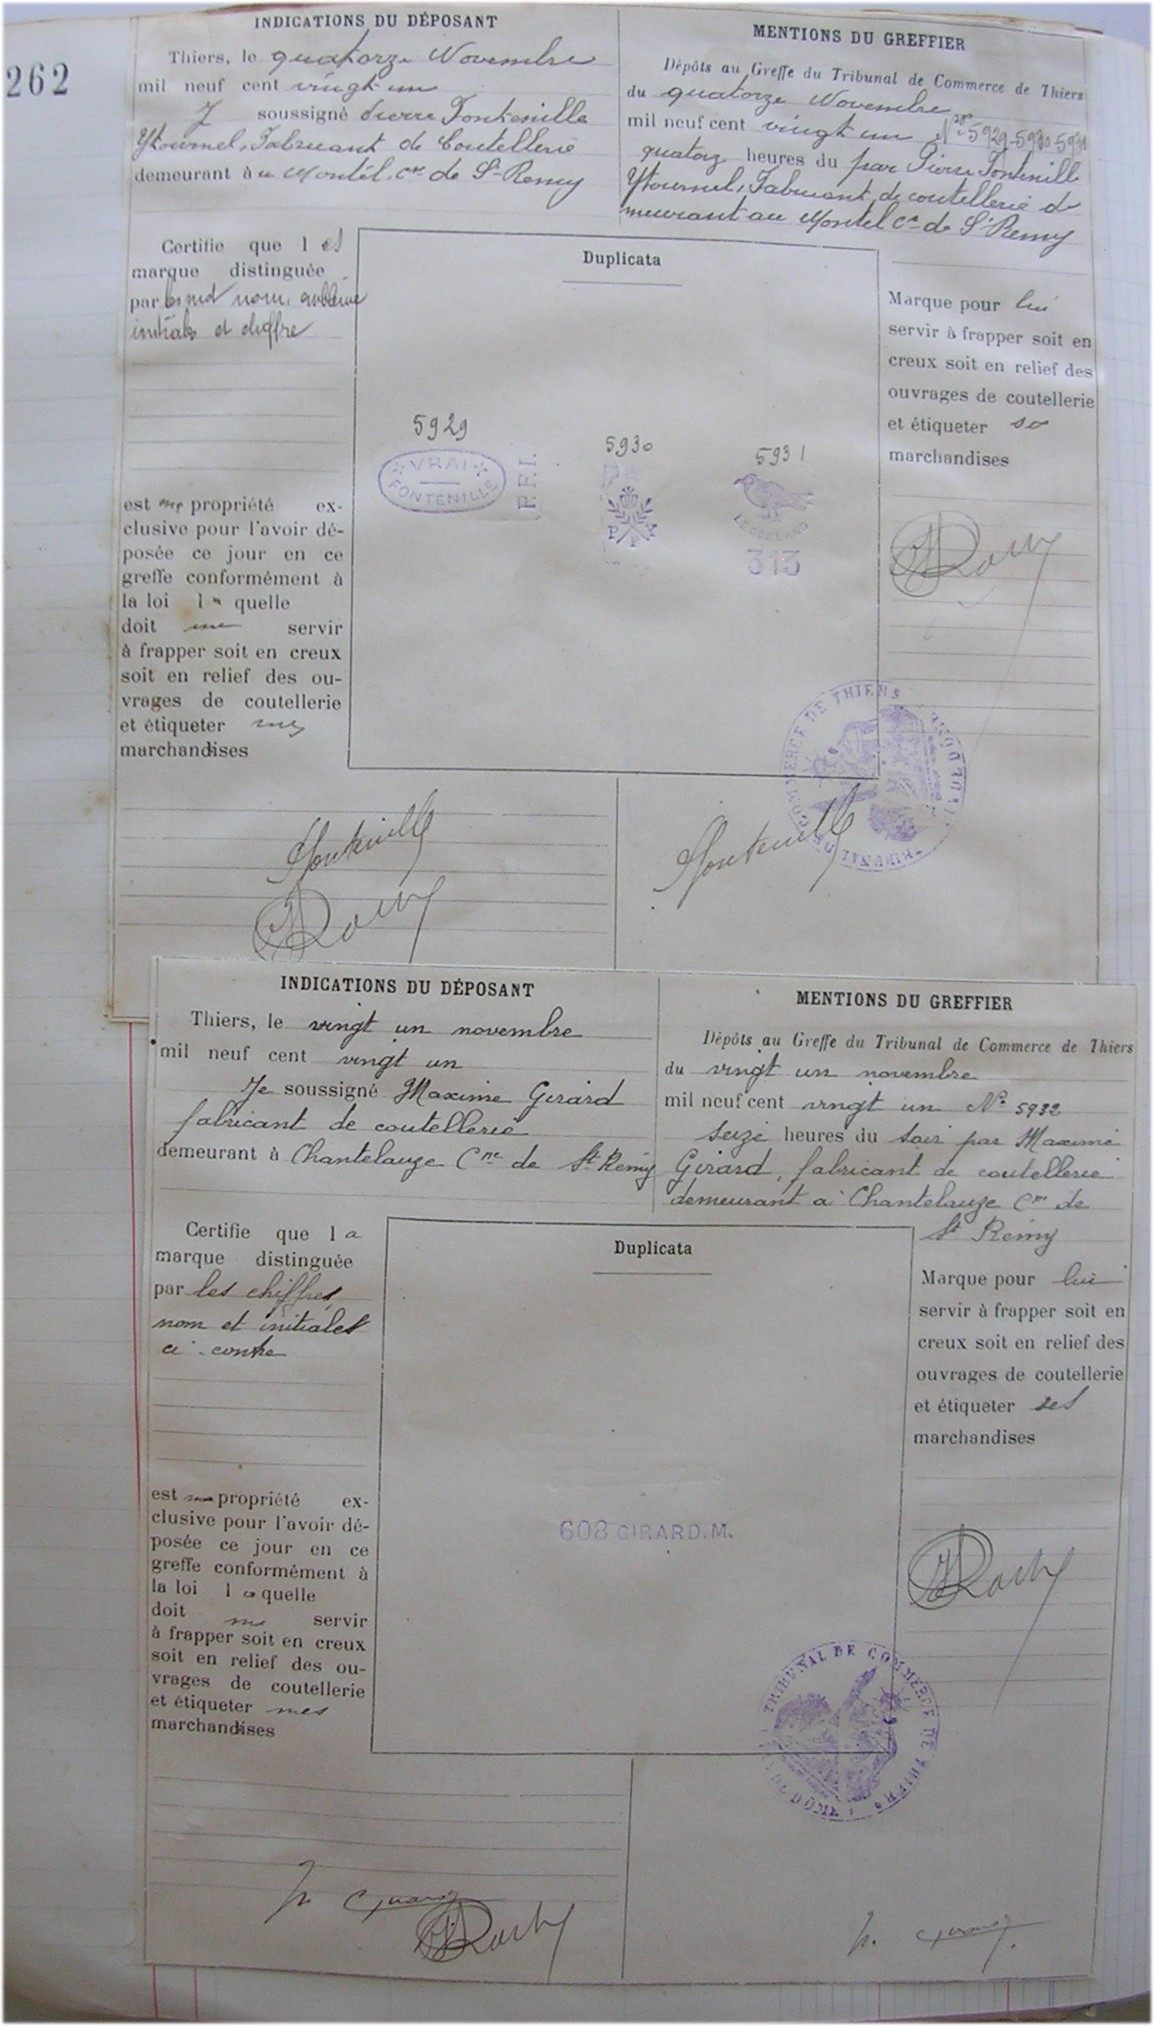 262
INDICATIONS DU DÉPOSANT
Thiers, le quatorze Novembre
mil neuf cent vingt un
J soussigné Pierre Fontenille
Fabricant de Coutellerie
demeurant à au Montel Cne de St Remy
Certifie que l es
marque distinguée
par les mot nom, emblème
initiales et chiffre
est me propriété ex-
clusive pour l'avoir dé-
posée ce jour en ce
greffe conformément à
la loi l a quelle
doit me servir
à frapper soit en creux
soit en relief des ou-
vrages de coutellerie
et étiqueter mes
marchandises
MENTIONS DU GREFFIER
Dépôts au Greffe du Tribunal de Commerce de Thiers
du quatorze Novembre
mil neuf cent vingt un Nos 5929-5930-5931
quatorz heures du par Pierre Fontenille
Fabricant de coutellerie de
meurant au Montel Cne de St Remy
Duplicata
5929
VRAI
FONTENILLE
P.F.I.
5930
P F Y
5931
LE GOELAND
313
Marque pour lui
servir à frapper soit en
creux soit en relief des
ouvrages de coutellerie
et étiqueter se
marchandises
TRIBUNAL DE COMMERCE DE THIERS
Fontenille
Fontenille
INDICATIONS DU DÉPOSANT
Thiers, le vingt un novembre
mil neuf cent vingt un
Je soussigné Maxime Girard
fabricant de coutellerie
demeurant à Chantelauze Cne de St Rémy
Certifie que l a
marque distinguée
par les chiffres,
nom et initiales
ci-contre
est ma propriété ex-
clusive pour l'avoir dé-
posée ce jour en ce
greffe conformément à
la loi l a quelle
doit me servir
à frapper soit en creux
soit en relief des ou-
vrages de coutellerie
et étiqueter mes
marchandises
MENTIONS DU GREFFIER
Dépôts au Greffe du Tribunal de Commerce de Thiers
du vingt un novembre
mil neuf cent vingt un No 5932
seize heures du soir par Maxime
Girard, fabricant de coutellerie
demeurant à Chantelauze Cne de
St Rémy
Duplicata
608 GIRARD.M.
Marque pour lui
servir à frapper soit en
creux soit en relief des
ouvrages de coutellerie
et étiqueter ses
marchandises
TRIBUNAL DE COMMERCE DE THIERS